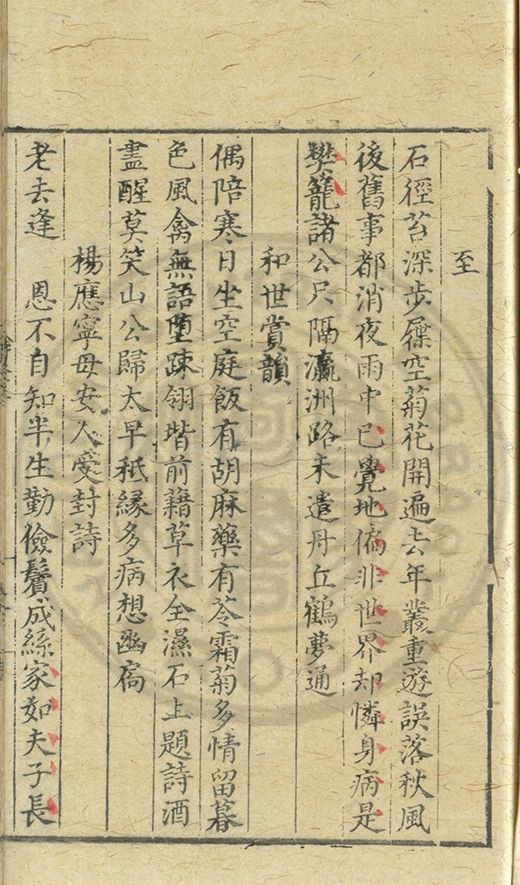 至
石徑苔深步屧空菊花開遍去年叢重遊誤落秋風
後舊事都消夜雨中已覺地偏非世界却憐身病是
樊籠諸公尺隔瀛洲路未遣丹丘鶴夢通
和世賞韻
偶陪寒日坐空庭飯有胡麻藥有苓霜菊多情留暮
色風禽無語墮疎翎堦前藉草衣全濕石上題詩酒
盡醒莫笑山公歸太早秪緣多病想幽扃
楊應寧母安人受封詩
老去逢 恩不自知半生勤儉鬢成絲家如夫子長